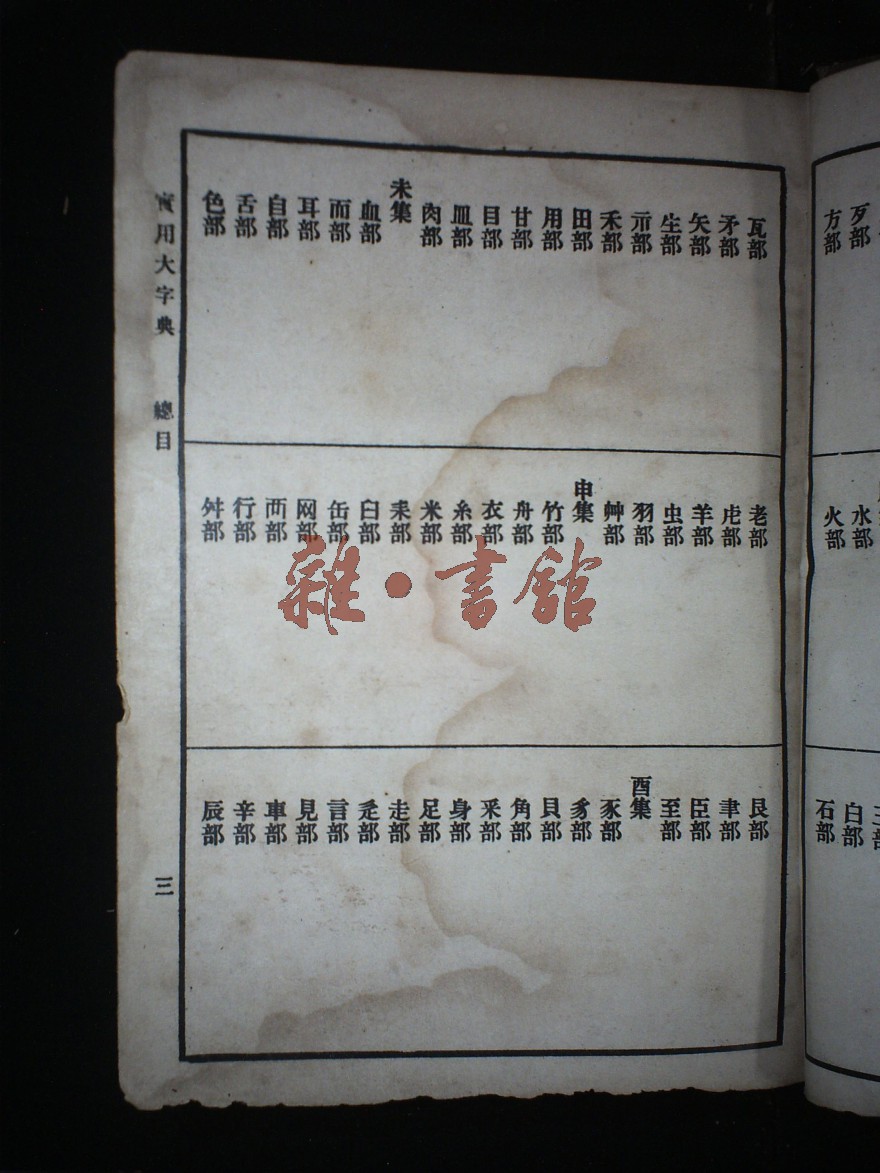 方部
歹部
水部
火部
白部
石部
瓦部
矛部
矢部
生部
示部
禾部
田部
用部
甘部
目部
皿部
肉部
未集
血部
而部
耳部
自部
舌部
色部
老部
虍部
羊部
虫部
羽部
艸部
申集
竹部
舟部
衣部
糸部
米部
耒部
臼部
缶部
网部
襾部
行部
舛部
艮部
聿部
臣部
至部
酉集
豕部
豸部
貝部
角部
釆部
身部
足部
走部
辵部
言部
見部
車部
辛部
辰部
實用大字典 總目 三
雜·書館